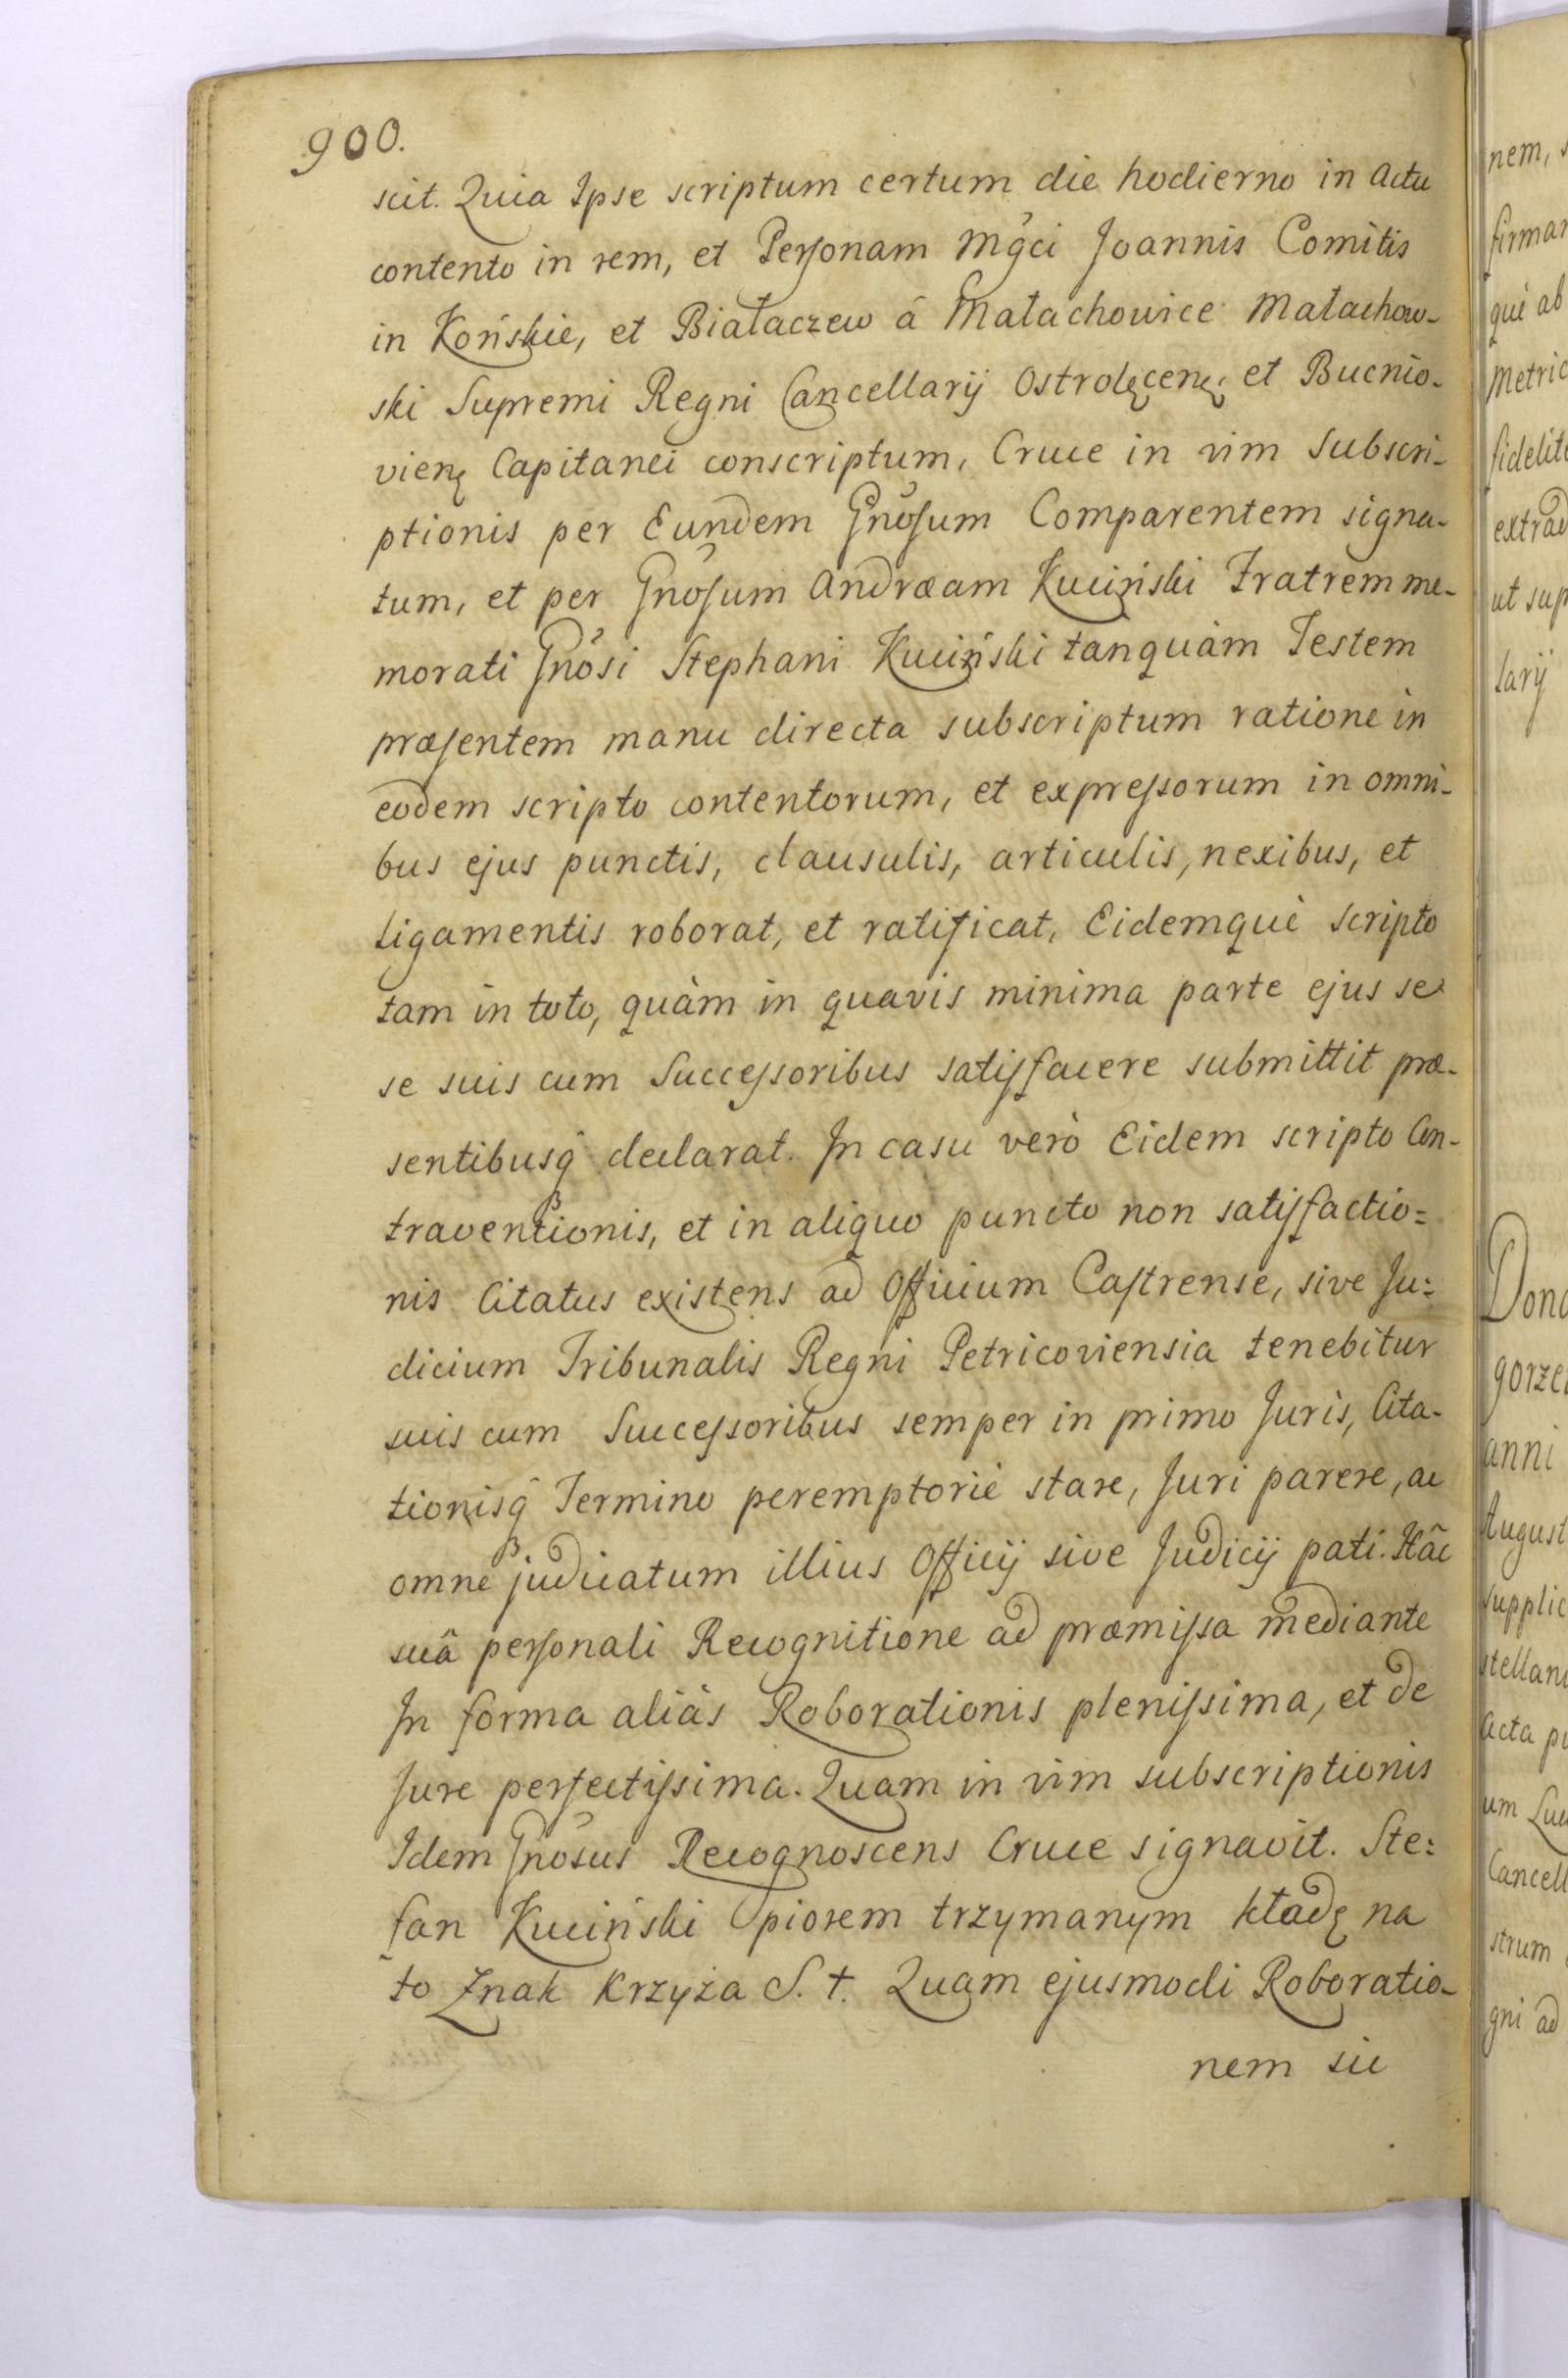 900.
scit. Quia Ipse scriptum certum die hodierno in Actu
contento in rem, et Personam Mgci Joannis Comitis
in Końskie, et Białaczew á Małachowice Małachow-
ski Supremi Regni Cancellarij Ostrolęcenę, et Bucnio-
vienę Capitanei conscriptum, Cruce in vim Subscri-
ptionis per Eundem Gnosum Comparentem signa-
tum, et per Gnosum Andræam Kuciński Fratrem me-
morati Gnosi Stephani Kuciński tanquàm Testem
præsentem manu directa subscriptum ratione in
eodem scripto contentorum, et expressorum in omni-
bus ejus punctis, clausulis, articulis, nexibus, et
ligamentis roborat, et ratificat, Eidemquè scripto
tam in toto, quàm in quavis minima parte ejus se
se suis cum Successoribus satisfacere submittit præ-
sentibusq declarat. In casu verò Eidem scripto Con-
traventionis, et in aliquo puncto non satisfactio=
nis Citatus existens ad Officium Castrense, sive Ju=
dicium Tribunalis Regni Petricoviensia tenebitur
suis cum Successoribus semper in primo Juris, Cita-
tionisq Termino peremptoriè stare, Juri parere, ac
omne judicatum illius Officij sive Judicij pati. Hâc
suâ personali Recognitione ad præmissa mediante
In forma aliàs Roborationis plenissima, et de
Jure perfectissima. Quam in vim subscriptionis
Idem Gnosus Recognoscens Cruce signavit. Ste=
fan Kuciński piorem trzymanym kładę na
to Znak Krzyża S. †. Quam ejusmodi Roboratio-
nem sic
nem,
firmar
què ab
Metric
fidelit
extrad
ut sup
larij
Dona
gorze
anni
August
supplic
stellan
Acta
um
Cancell
strum
gni ad